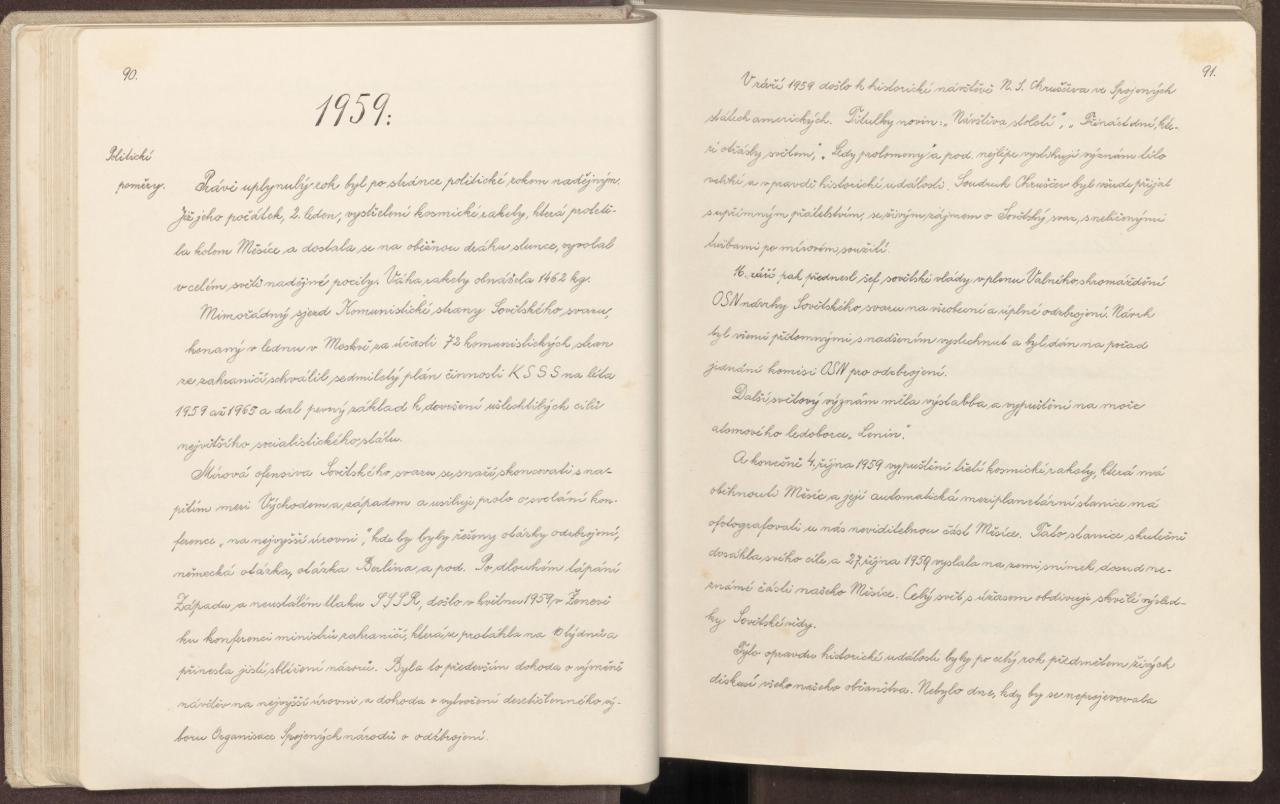 90.
1959:
Politické
poměry.
Právě uplynulý rok byl po stránce politické rokem nadějným.
Již jeho počátek, 2. leden, vystřelení kosmické rakety, která proletě-
la kolem Měsíce a dostala se na oběžnou dráhu slunce, vyvolal
v celém světě nadějné pocity. Váha rakety obnášela 1462 kg.
Mimořádný sjezd Komunistické strany Sovětského svazu,
konaný v lednu v Moskvě za účasti 72 komunistických stran
ze zahraničí schválil sedmiletý plán činnosti KSSS na léta
1959 až 1965 a dal pevný základ k dovršení ušlechtilých cílů
největšího socialistického státu.
Mírová ofensiva Sovětského svazu se snaží skoncovati s na-
pětím mezi Východem a západem a usiluje proto o svolání kon-
ference „na nejvyšší úrovni", kde by byly řešeny otázky odzbrojení,
německá otázka, otázka Berlína a pod. Po dlouhém tápání
Západu a neustálém tlaku SSSR, došlo v květnu 1959 v Ženevě
ku konferenci ministrů zahraničí, která se protáhla na 10 týdnů a
přinesla jisté sblížení názorů. Byla to především dohoda o výměně
návštěv na nejvyšší úrovni a dohoda o vytvoření desetičlenného vý-
boru Organisace Spojených národů o odzbrojení.
91.
V září 1959 došlo k historické návštěvě N. S. Chruščeva ve Spojených
státech amerických. Titulky novin: „Návštěva století", „Třináct dní, kte-
ré otřásly světem", „Ledy prolomeny" a pod. nejlépe vystihují význam této
veliké a vpravdě historické události. Soudruh Chruščev byl všude přijat
s upřímným přátelstvím, se živým zájmem o Sovětský svaz, s nelíčenými
tužbami po mírovém soužití.
16. září pak přednesl šéf sovětské vlády v plenu Valného shromáždění
OSN návrhy Sovětského svazu na všeobecné a úplné odzbrojení. Návrh
byl všemi přítomnými s nadšením vyslechnut a byl dán na pořad
jednání komisi OSN pro odzbrojení.
Další světový význam měla výstavba a vypuštění na moře
atomového ledoborce „Lenin".
A konečně 4. října 1959 vypuštění třetí kosmické rakety, která má
oblétnouti Měsíc a její automatická meziplanetární stanice má
ofotografovati u nás neviditelnou část Měsíce. Tato stanice skutečně
dosáhla svého cíle, a 27. října 1959 vyslala na zemi snímek dosud ne-
známé části našeho Měsíce. Celý svět s úžasem obdivuje skvělé výsled-
ky Sovětské vědy.
Tyto opravdu historické události byly po celý rok předmětem živých
diskusí všeho našeho občanstva. Nebylo dne, kdy by se neprojevovala